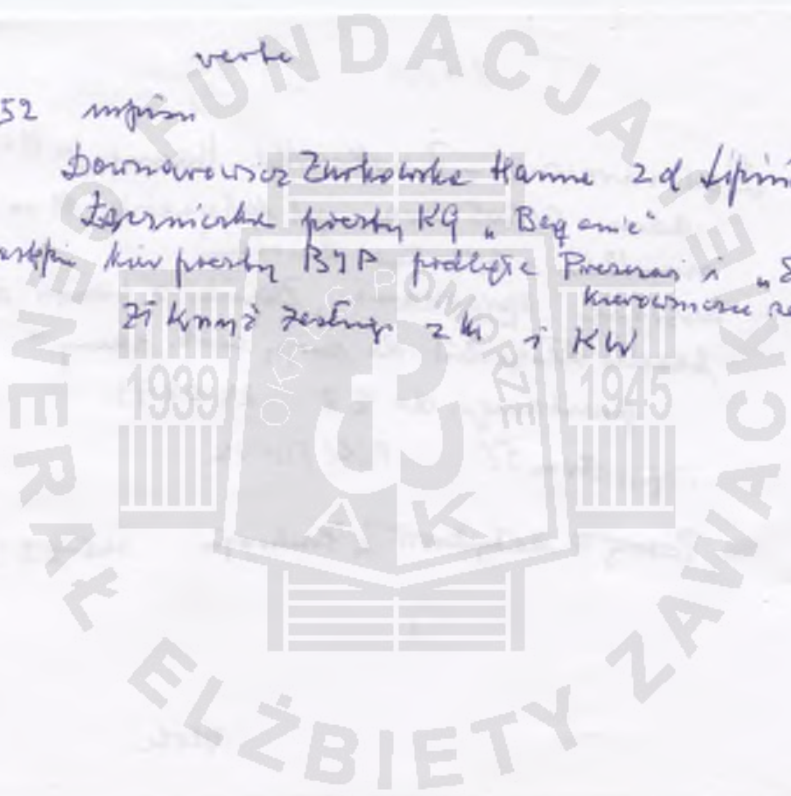 verte
52 wpisu
Downarowicz Żurkowska Hanna z d
Łączniczka poczty KG "
kier poczty BIP podległa i "
kierowniczce
Zł Krzyż Zasługi z M i KW
FUNDACJA
GENERAŁ ELŻBIETY ZAWACKIEJ
OKRĘG POMORZE
1939
1945
AK